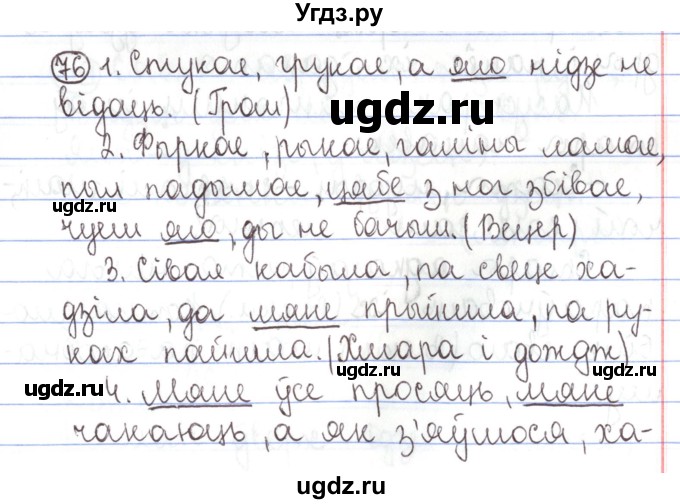 Угдз.ру
76 1. Стукае, грукае, а яго нідзе не
відаць. (Гром)
ugdz.ru
2. Фыркае, рыкае, галіны ламае,
пыл падымае, цябе з ног збівае,
ugdz.ru
ugdz.ru
чуеш яго, ды не бачыш. (Вецер)
3. Сівая кабыла, па свеце ха-
дзіла, да мяне прыйшла, па ру-
ках пайшла. (Хмара і дождж)
ugdz.ru
ugdz.ru
ugdz.ru
4. Мяне ўсе просяць, мяне
чакаюць, а як з'яўлюся, ха-